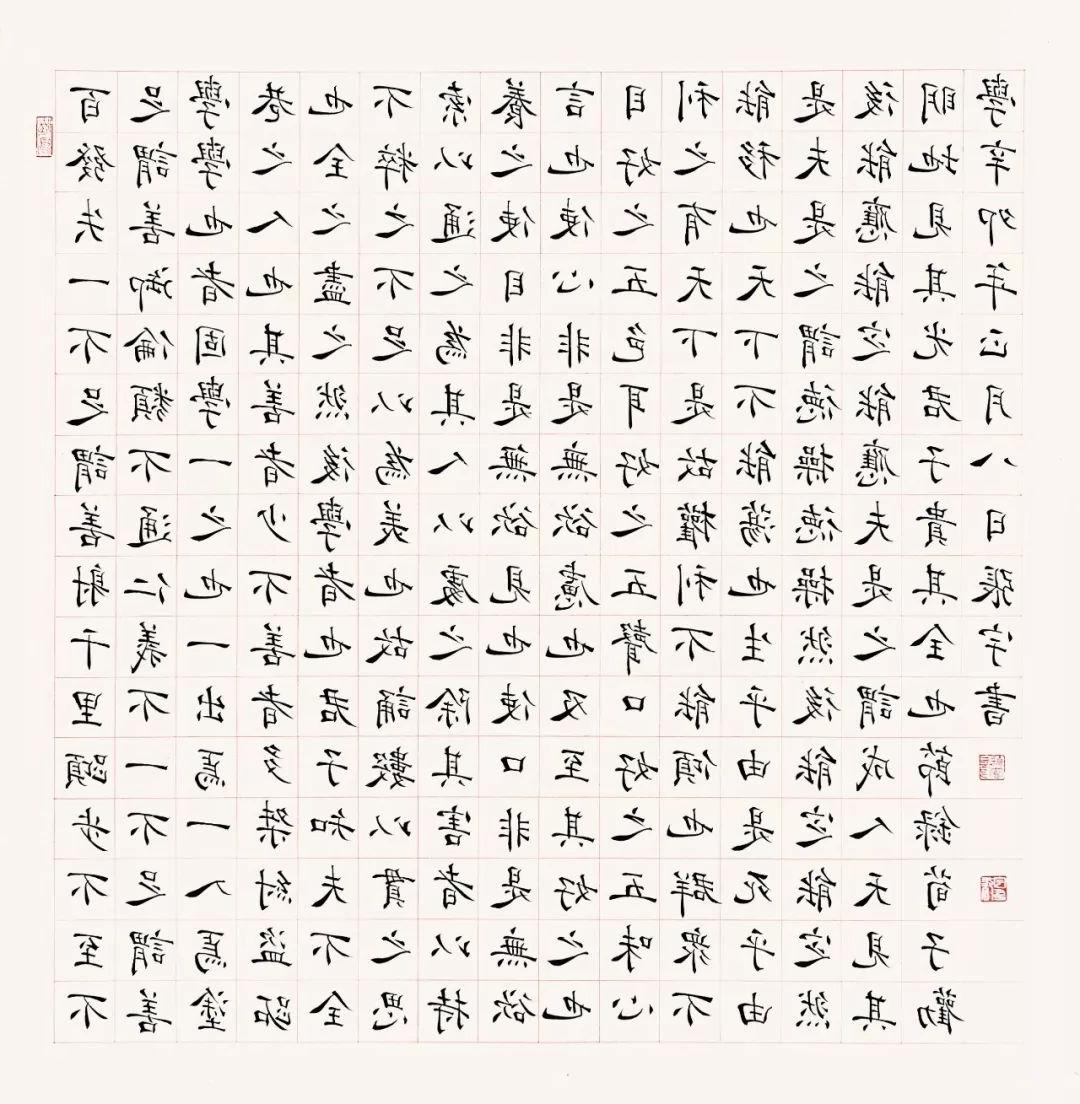 百發失一不足謂善射千里蹞步不至不
足謂善御倫類不通仁義不一不足謂善
學學也者固學一之也一出焉一入焉塗
巷之人也其善者少不善者多桀紂盜跖
也全之盡之然後學者也君子知夫不全
不粹之不足以為美也故誦數以貫之思
索以通之為其人以處之除其害者以持
養之使目非是無欲見也使口非是無欲
言也使心非是無欲慮也及至其好之也
目好之五色耳好之五聲口好之五味心
利之有天下是故權利不能傾也群眾不
能移也天下不能蕩也生乎由是死乎由
是夫是之謂德操德操然後能定能定然
後能應能定能應夫是之謂成人天見其
明地見其光君子貴其全也節錄荀子勸
學辛卯年正月八日張宇書